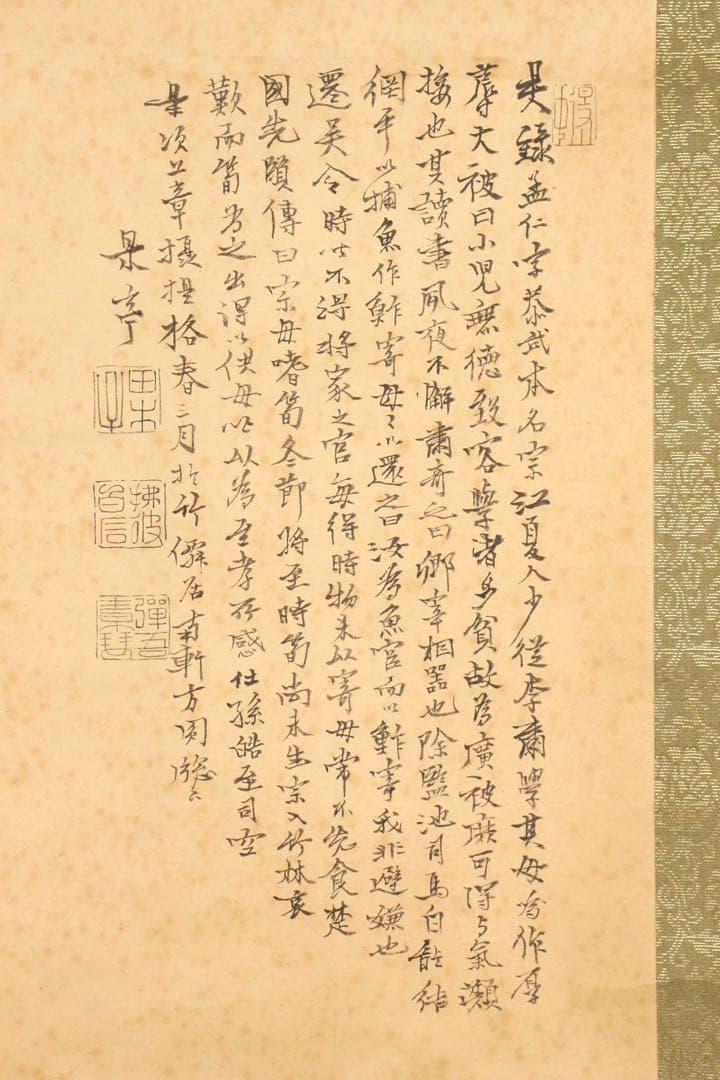 吳錄孟仁字恭武本名宗江夏人少從李肅學其母為作厚
蓐大被曰小兒無德致客學者多貧故為廣被庶可得與氣類
接也其讀書夙夜不懈肅奇之曰卿宰相器也除監池司馬自能結
網手以捕魚作鮓寄母〻以還之曰汝為魚官而以鮓寄我非避嫌也
遷吳令時皆不得將家之官每得時物未以寄母常不先食楚
國先賢傳曰宗母嗜筍冬節將至時筍尚未生宗入竹林哀
歎而筍為之出得以供母皆以為至孝所感仕孫皓至司空
昰次上章攝提格春三月於竹僊居南軒方圓牕下
杲亭
田木
彈